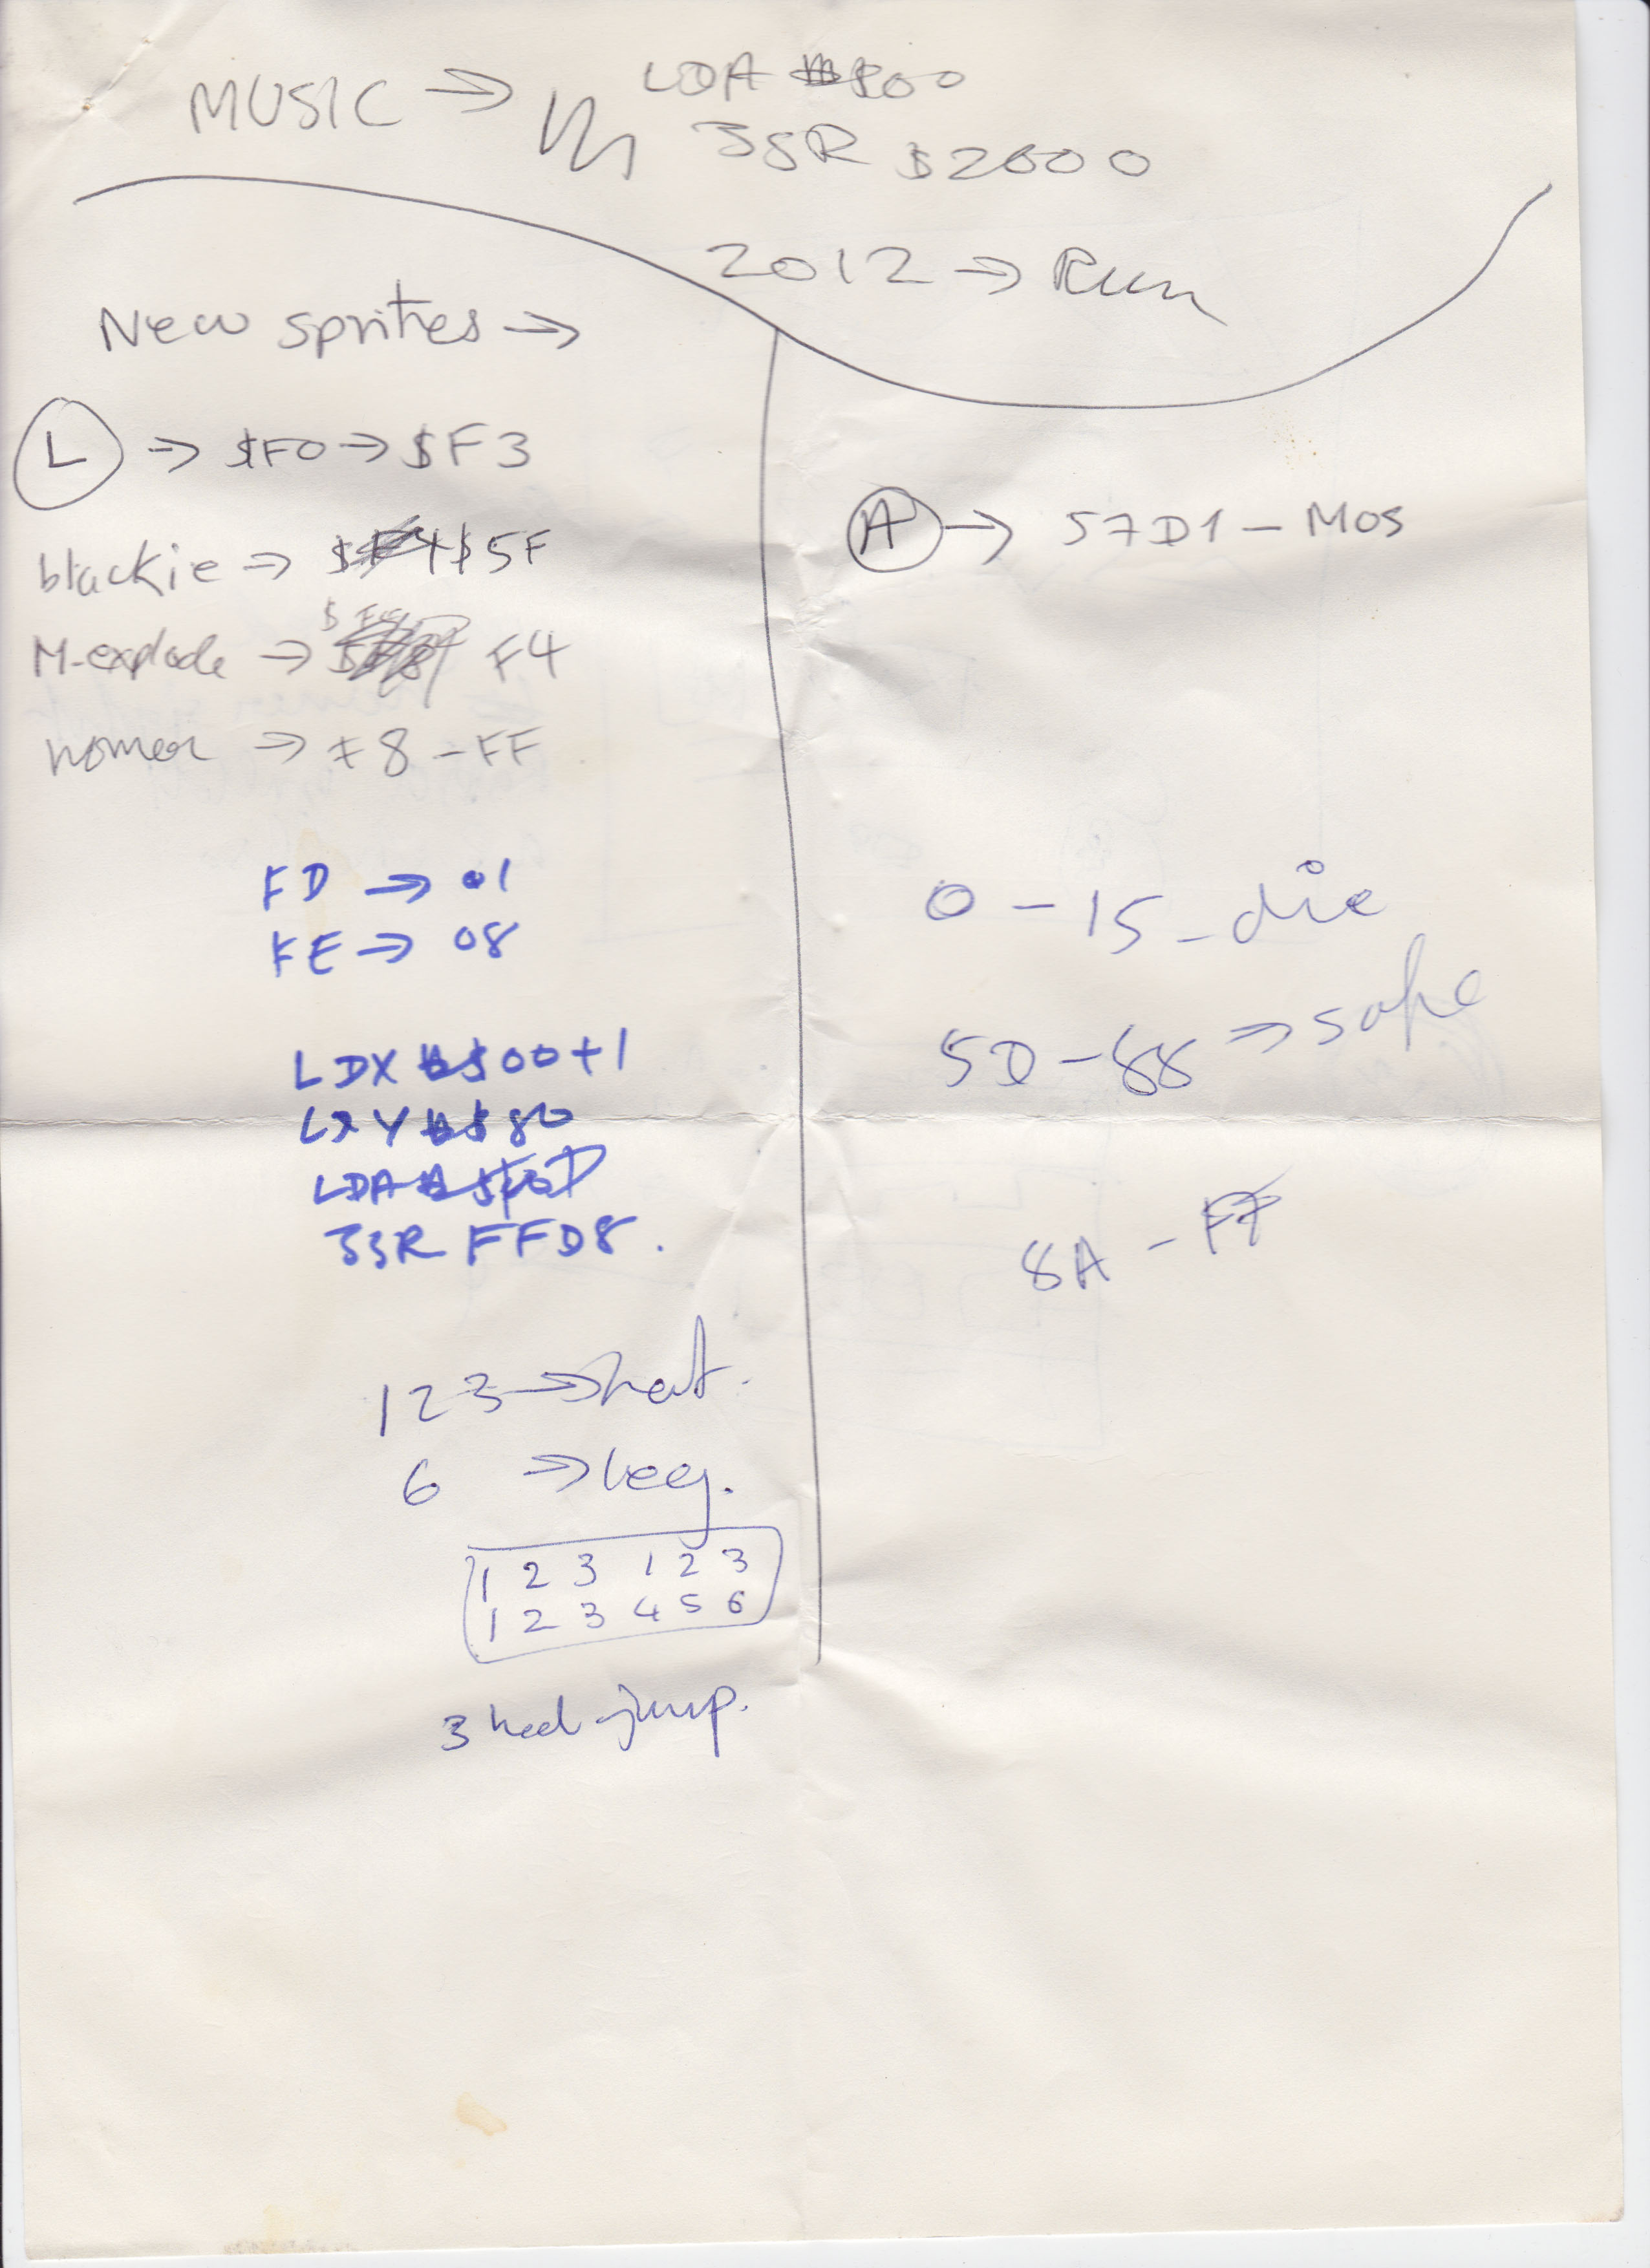 MUSIC →
LDA #$00
JSR $2000
2012 → Run
New sprites →
L → $F0 → $F3
blackie → $5F
M-explode → F4
homer → F8 - FF
FD → 01
FE → 08
LDX #$00+1
LDY #$80
LDA #$FD
JSR FFD8.
123 →
6 → leg.
1 2 3 1 2 3
1 2 3 4 5 6
3 head - jump.
A → 57D1 - MOS
0 - 15 - die
50 - 88 → safe
8A - FF